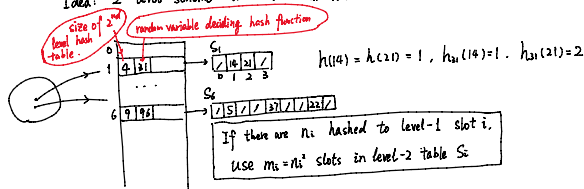 Idea: 2
size of 2nd
level hash
table.
random variable deciding hash function
0
1 4 31
...
6 9 96
S1
/ 14 21 /
0 1 2 3
h(14) = h(21) = 1 , h31(14)=1 . h31(21)=2
S6
/ 5 / / 37 / / 22 /
If there are ni hashed to level-1 slot i,
use mi = ni² slots in level-2 table Si